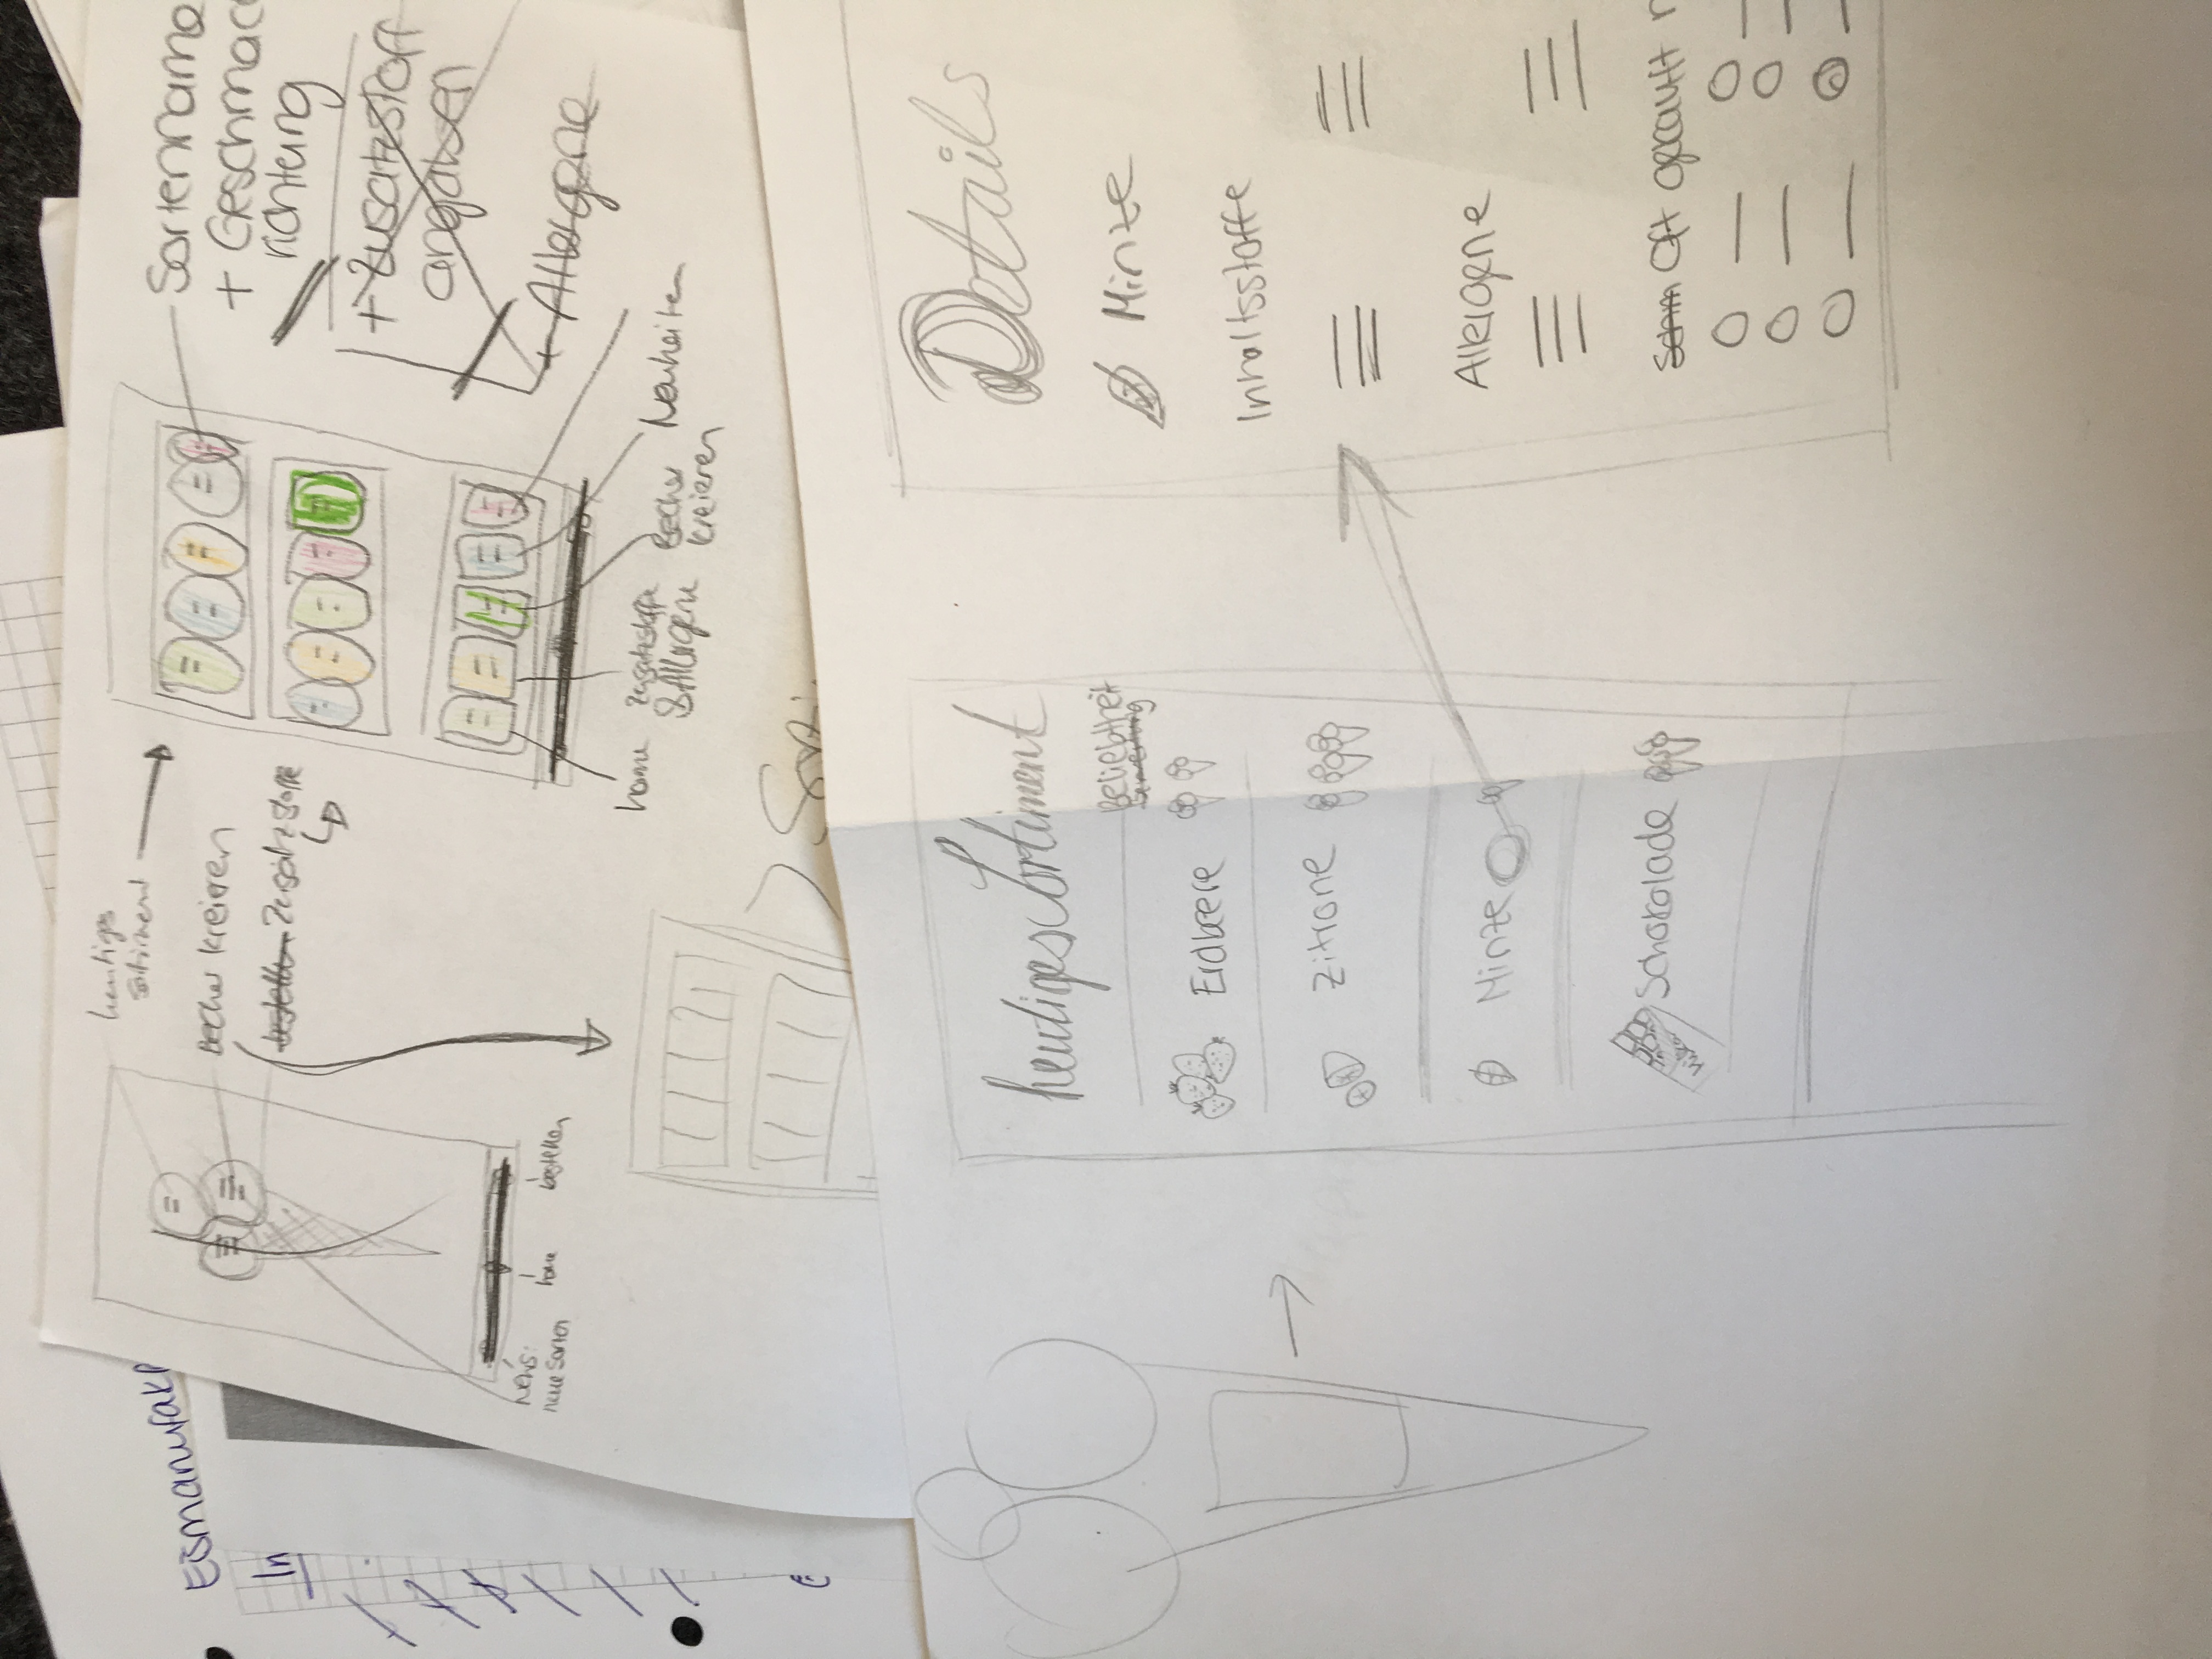 Eismanufakt
In
heutiges
Sortiment
Becher kreieren
bestellen Zusatzstoffe
News:
neue Sorten
home
bestellen
Sortenname
+ Geschmac
richtung
+ Zusatzstoff
angaben
+ Allergene
home
Zusatzstoffe
& Allergene
Becher
kreieren
Neuheiten
heutiges Sortiment
Beliebtheit
Bewertung
Erdbeere
Zitrone
Minze
Milka
Schokolade
Details
Minze
Inhaltsstoffe
Allergene
Schm Oft gekauft